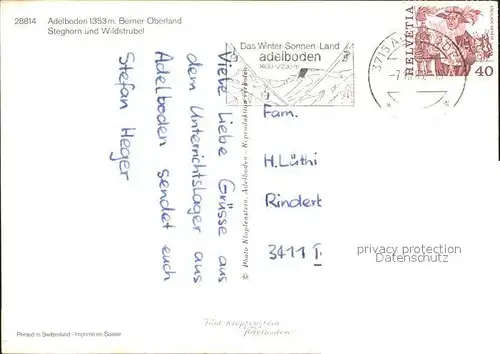 28814 Adelboden 1353m. Berner Oberland
Steghorn und Wildstrubel
Das Winter-Sonnen-Land
adelboden
1400-2350 m
3715 A
-7
HELVETIA
40
Viele liebe Grüsse aus
dem Unterrichtslager aus
Adelboden sendet euch
Stefan Heger
© Photo Klopfenstein, Adelboden - Reproduktion verboten
Fam.
H.Lüthi
Rindert
3411 I.
privacy protection
Datenschutz
Printed in Switzerland - Imprimé en Suisse
Foto Klopfenstein
Adelboden